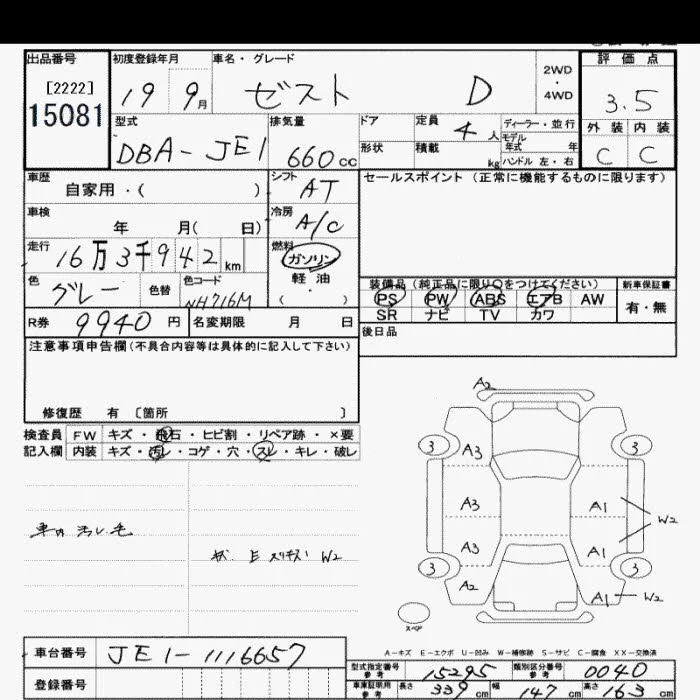 出品番号 初度登録年月 車名・グレード 2WD・4WD 評価点
[2222]
15081 19 9月 ゼスト D 3.5
型式 排気量 ドア 定員 4人 ディーラー・並行 外装 内装
DBA-JE1 660cc 形状 積載 kg モデル年式 年 C C
ハンドル 左・右
車歴 シフト セールスポイント (正常に機能するものに限ります)
自家用・( ) AT
車検 冷房
年 月( 日) A/C
走行 燃料
16万3千942km ガソリン
色 色替 色コード 軽油
グレー NH716M ・( )
装備品(純正品に限り〇をつけてください) 新車保証書
PS PW ABS エアB AW 有・無
SR ナビ TV カワ
R券 9940円 名変期限 月 日 後日品
注意事項申告欄(不具合内容等は具体的に記入して下さい)
修復歴 有 〔箇所 〕
検査員 FW キズ・飛石・ヒビ割・リペア跡・×要
記入欄 内装 キズ・汚レ・コゲ・穴・スレ・キレ・破レ
A2
3 A3 3
A3 A1 W2
A3 A1
3 A2 A1 W2 3
スペア
A-キズ E-エクボ U-凹み W-補修跡 S-サビ C-腐食 XX-交換済
車台番号 JE1-1116657
登録番号
型式指定番号 参考 15295 類別区分番号 参考 0040
車庫証明用 参考 長さ 339cm 幅 147cm 高さ 163cm